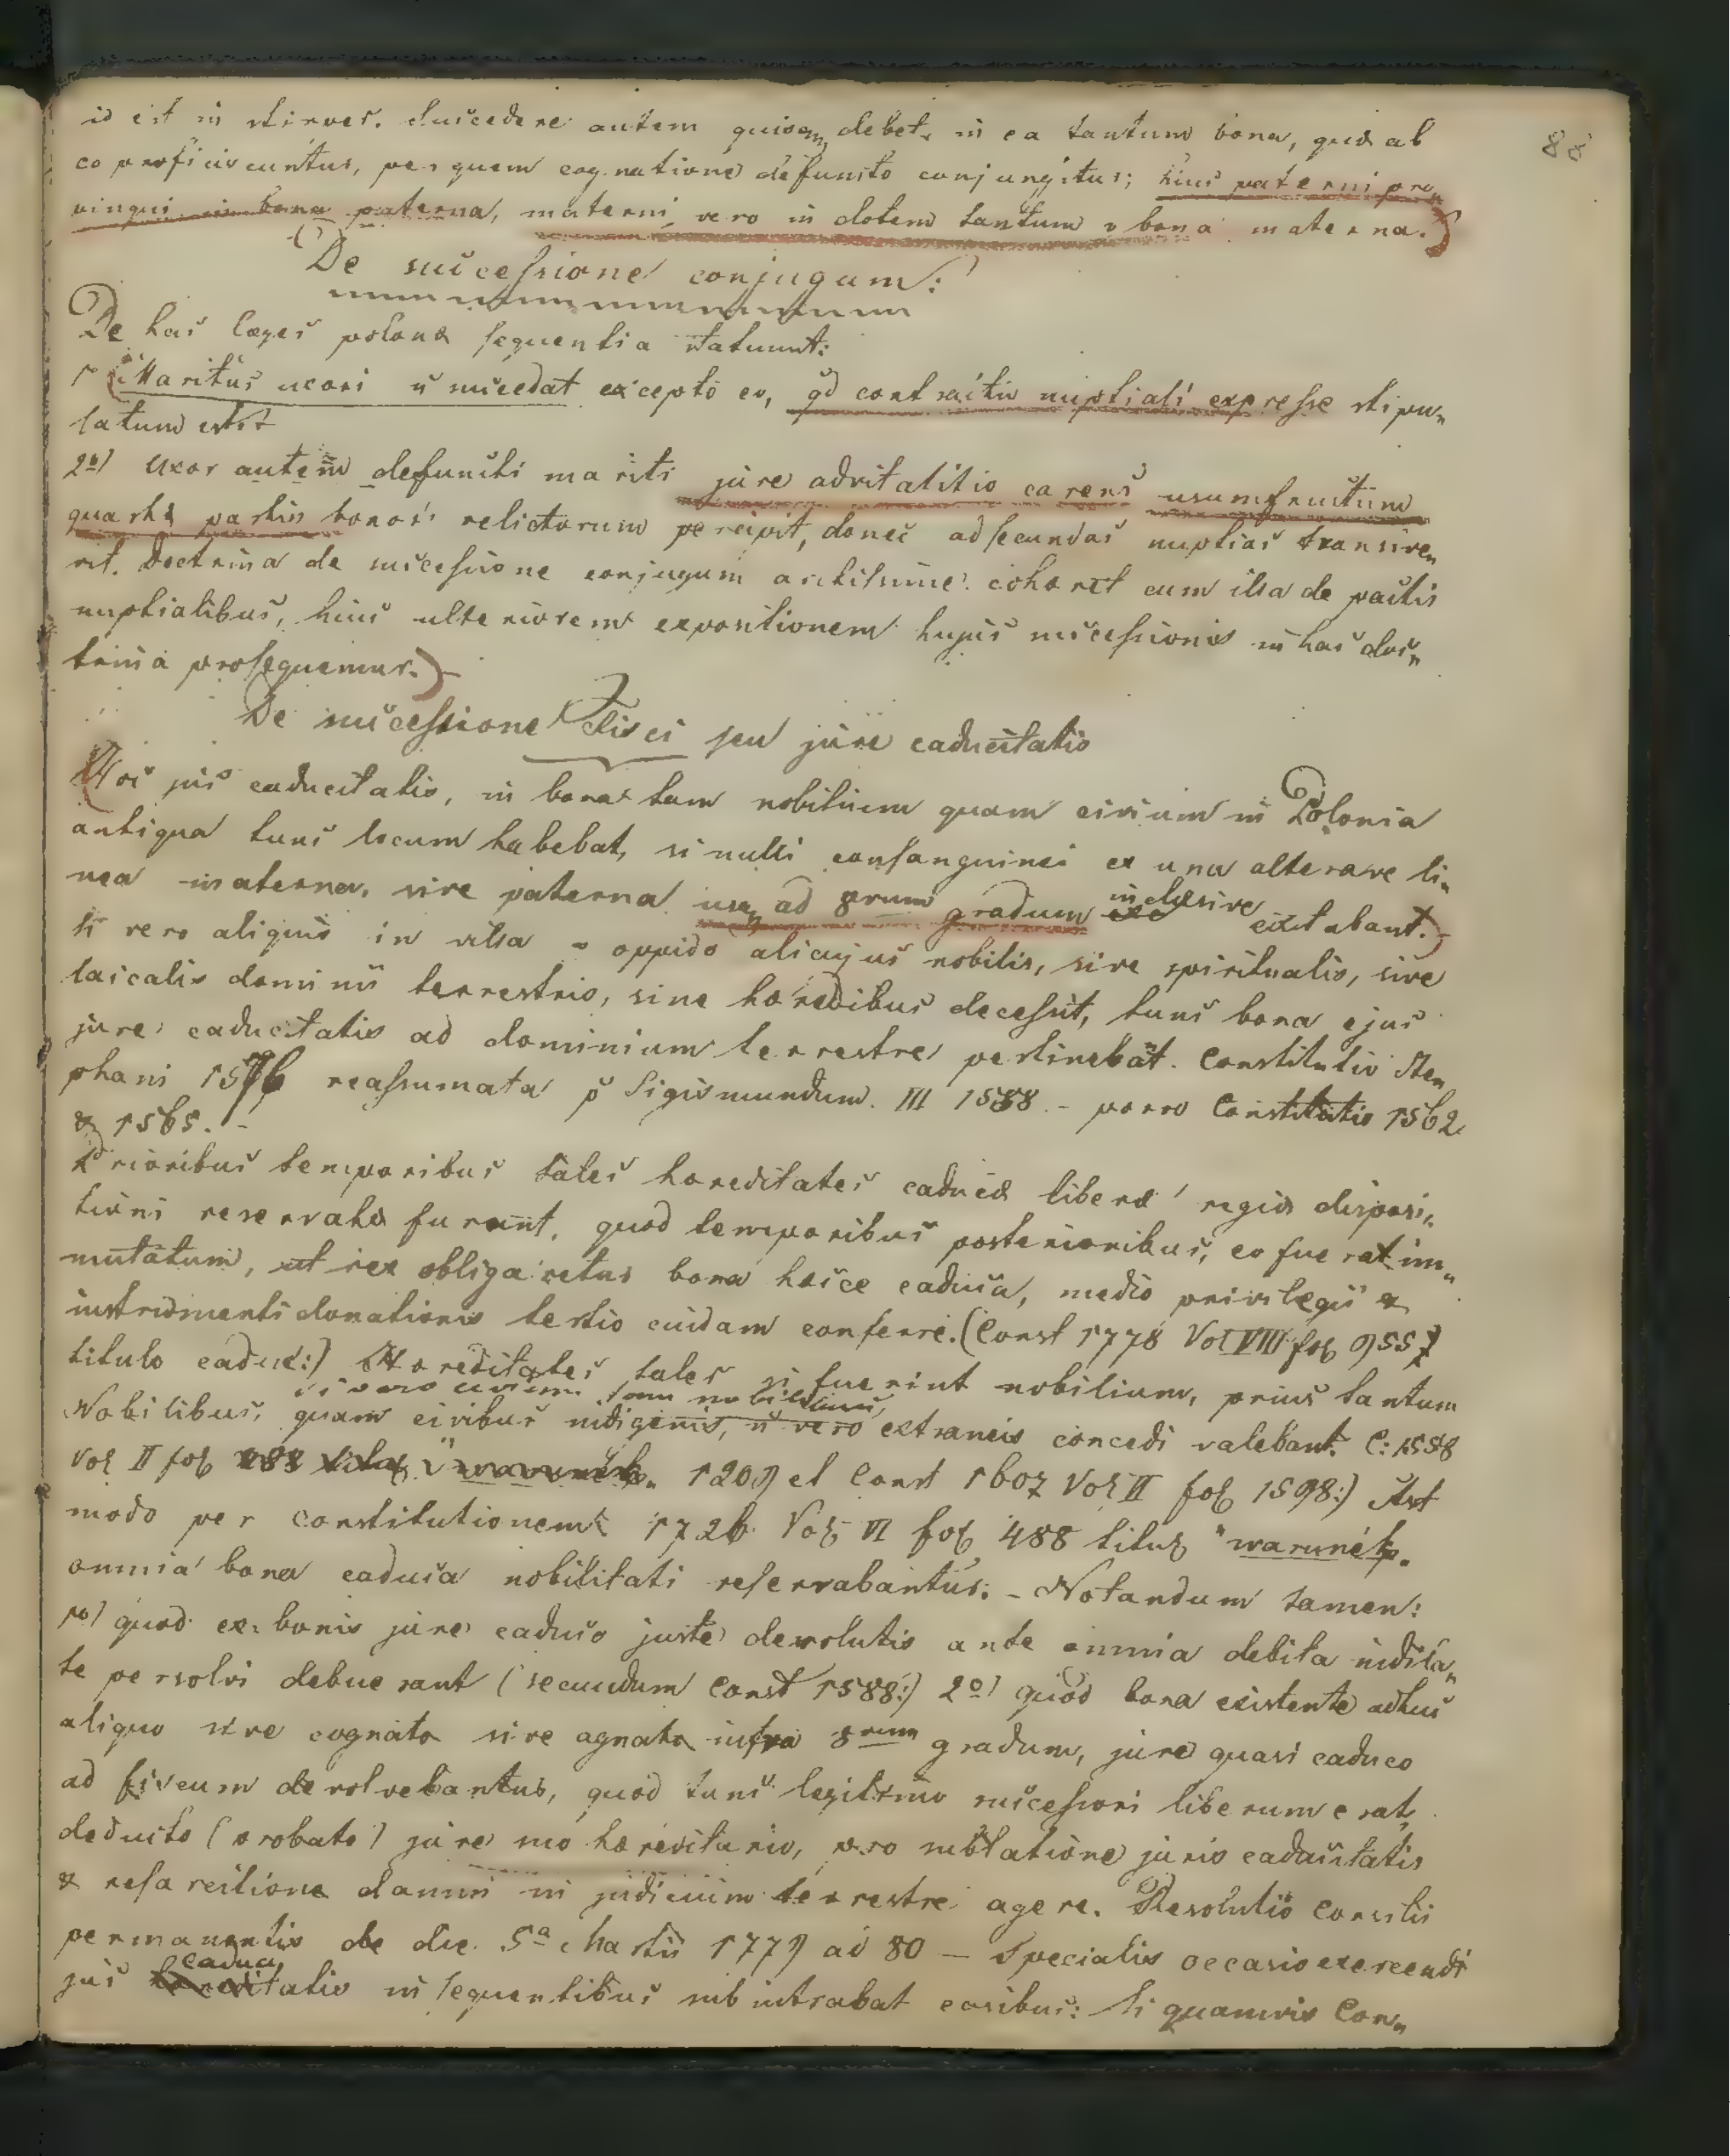 88
id est in stirpes. Succedere autem quisq, debet in ea tantum bona, quæ ab
eo proficiscuntur, per quem cognatione defuncto conjungitur; hinc paterni pro„
pinqui in bona paterna, materni vero in dotem tantum & bona materna.)
(De successione conjugum:
De hac leges polonæ sequentia statuunt:
1º (Maritus uxori ñ succedat excepto eo, qd contractu nuptiali expresse stipu„
latum est.
2º) Uxor autem defuncti mariti jure advitalitio carens usumfructum
quartæ partis bonor: relictorum percipit, donec ad secundas nuptias transive„
rit. Doctrina de successione conjugum arctissime cohæret cum illa de pactis
nuptialibus, hinc ulteriorem expositionem hujus successionis in hac doc„
trina prosequemur.)
De successione Fisci seu jure caducitatis
(Hoc jus caducitatis, in bona tam nobilium quam civium in Polonia
antiqua tunc locum habebat, si nulli consanguinei ex una alterave li„
nea materna, sive paterna usq ad 8vum gradum inclusive extabant.)
Si vero aliquis in villa v oppido alicujus nobilis, sive spiritualis, sive
laicalis dominii terrestris, sine hæredibus decessit, tunc bona ejus
jure caducitatis ad dominium terrestre pertinebãt. Constitutio Ste„
phani 1576 reassumata p Sigismundum. III 1588. – porro Constitutio 1562
& 1565. –
Prioribus temporibus tales hæreditates caducæ liberæ regis disposi„
tioni reservatæ furunt, quod temporibus posterioribus, eo fuerat im„
mutatum, ut rex obligaretur bona hæcce caduca, medio privilegii &
instrumenti donationis tertio cuidam conferre. (Const 1778 Vol VIII fol 955)
titulo caduc:) Hæreditates tales si fuerint nobilium, prius tantum
Nobilibus, si vero civium tam nobilibus, quam civibus indigenis, ñ vero extraneis concedi valebant. C: 1588
Vol II fol 1209 et Const 1607 Vol II fol 1598:) Ast
modo per constitutionem 1726 Vol VI fol 488 titul "warunek„
omnia bona caduca nobilitati reservabantur. – Notandum tamen:
1º) quod ex bonis jure caduco juste devolutis ante omnia debita indita„
te persolvi debuerant (secundum Const 1588:) 2º) quod bona existente adhuc
aliquo sive cognato sive agnato infra 8vum gradum, jure quasi caduco
ad fiscum devolvebantur, quod tunc legitimo successori liberum erat,
deducto (probato) jure suo hæreditario, pro sublatione juris caducitatis
& resarcitione damni in judicium terrestre agere. Resolutio Consilii
permanentis de die 5a Martii 1779 ad 80 – Specialis occasio exercendi
jus caducitatis in sequentibus subintrabat casibus: Si quamvis Con„